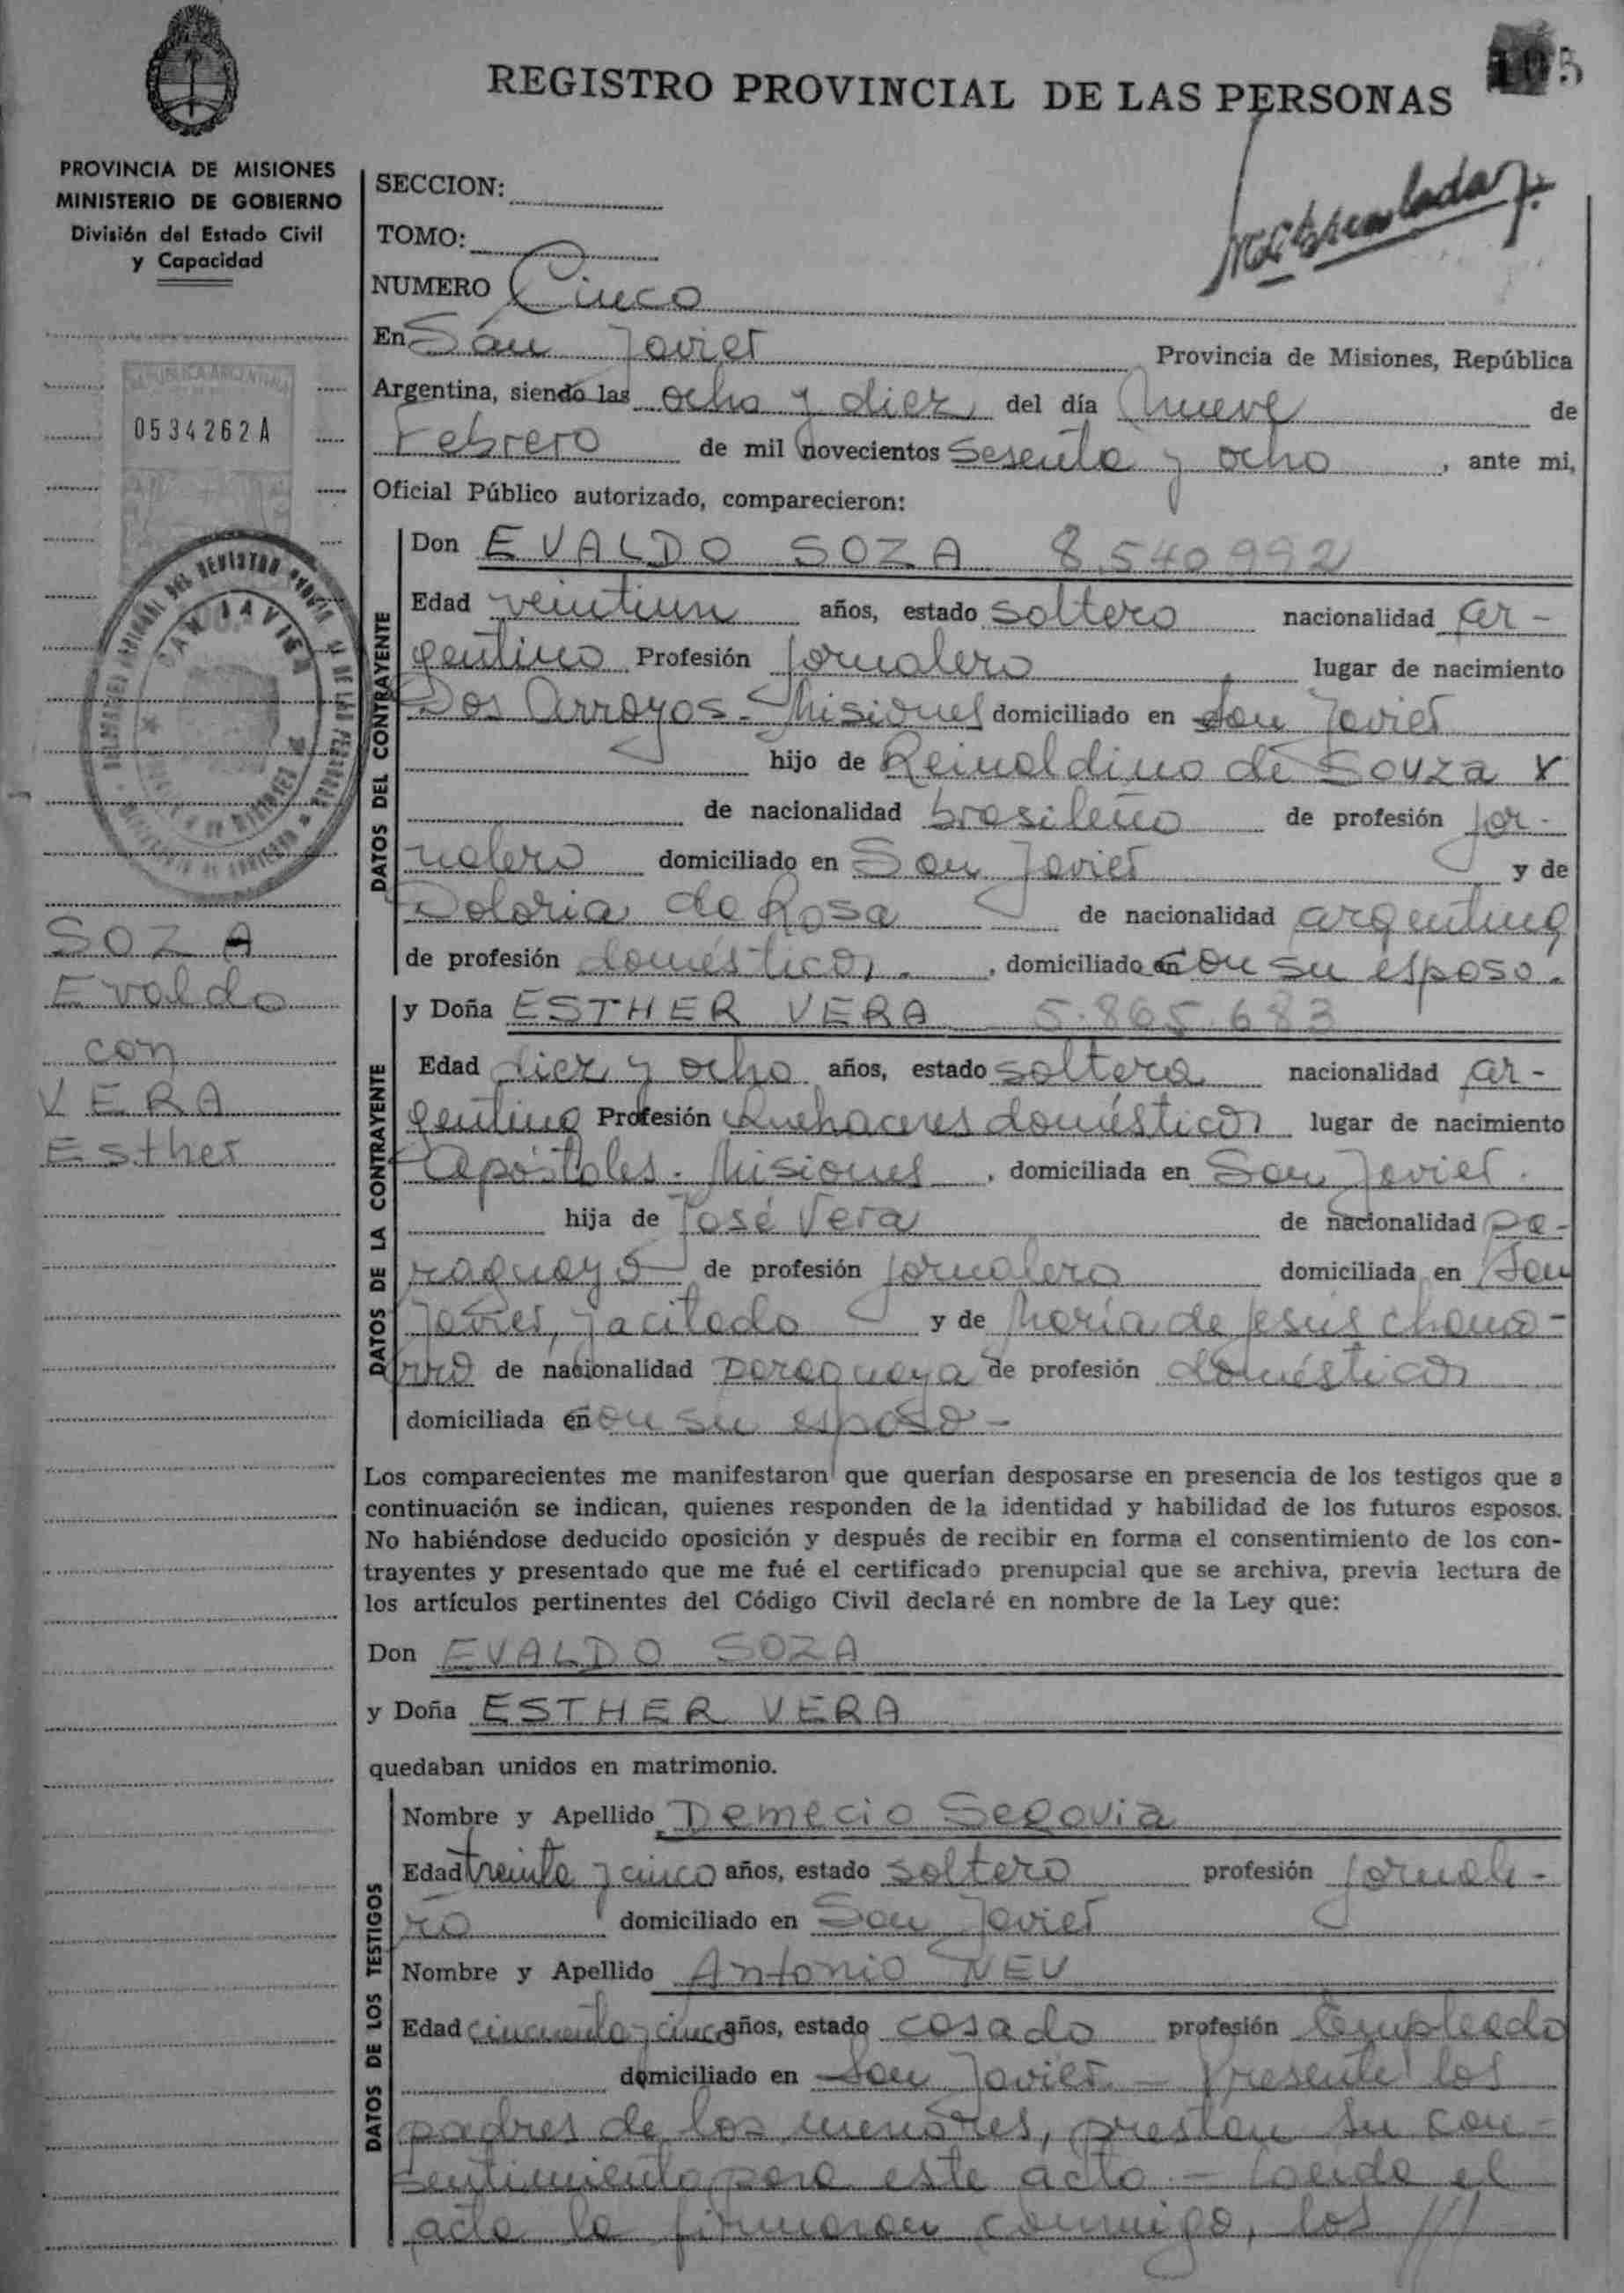 REGISTRO PROVINCIAL DE LAS PERSONAS
PROVINCIA DE MISIONES
MINISTERIO DE GOBIERNO
División del Estado Civil
y Capacidad
0534262A
SOZA
Evaldo
con
VERA
Esther
SECCION:
TOMO:
NUMERO Cinco
En San Javier Provincia de Misiones, República
Argentina, siendo las ocho y diez del día nueve de
Febrero de mil novecientos sesenta y ocho, ante mi,
Oficial Público autorizado, comparecieron:
DATOS DEL CONTRAYENTE
Don EVALDO SOZA 8.540.992
Edad veintiun años, estado soltero nacionalidad ar-
gentino Profesión jornalero lugar de nacimiento
Dos Arroyos - Misiones domiciliado en San Javier
hijo de Reinaldino de Souza
de nacionalidad brasileño de profesión jor-
nalero domiciliado en San Javier y de
Doloria da Rosa de nacionalidad argentina
de profesión domésticos., domiciliado en con su esposo.
DATOS DE LA CONTRAYENTE
y Doña ESTHER VERA 5.865.683
Edad diez y ocho años, estado soltera nacionalidad ar-
gentina Profesión Quehaceres domésticos lugar de nacimiento
Apóstoles - Misiones, domiciliada en San Javier.
hija de José Vera de nacionalidad pa-
raguayo de profesión jornalero domiciliada en San
Javier, ya citado y de María de Jesús Chama-
rro de nacionalidad paraguaya de profesión domésticos
domiciliada en con su esposo -
Los comparecientes me manifestaron que querían desposarse en presencia de los testigos que a
continuación se indican, quienes responden de la identidad y habilidad de los futuros esposos.
No habiéndose deducido oposición y después de recibir en forma el consentimiento de los con-
trayentes y presentado que me fué el certificado prenupcial que se archiva, previa lectura de
los artículos pertinentes del Código Civil declaré en nombre de la Ley que:
Don EVALDO SOZA
y Doña ESTHER VERA
quedaban unidos en matrimonio.
DATOS DE LOS TESTIGOS
Nombre y Apellido Demecio Segovia
Edad treinta y cinco años, estado soltero profesión jornale-
ro domiciliado en San Javier
Nombre y Apellido Antonio NEU
Edad cincuenta y cinco años, estado casado profesión Empleado
domiciliado en San Javier - Presente los
padres de los menores, prestan su con-
sentimiento para este acto - Leída el
acta la firmaron conmigo, los ///